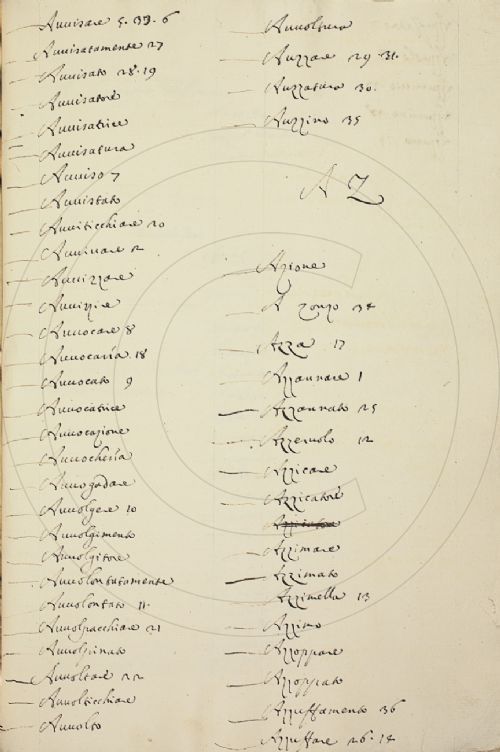 Auuisare 5. 33. 6
Auuisatamente 27
Auuisato 28. 19
Auuisatore
Auuisatrice
Auuisatura
Auuiso 7
Auuistato
Auuiticchiare 20
Auuiuare 2
Auuizzare
Auuizzire
Auuocare 8
Auuocaria 18
Auuocato 9
Auuocatrice
Auuocazione
Auuocheria
Auuogadare
Auuolgere 10
Auuolgimento
Auuolgitore
Auuolontatamente
Auuolontato 11.
Auuolpacchiare 21
Auuolpinato
Auuoltare 22
Auuolticchiare
Auuolto
Auuoltura
Auzzare 29 31.
Auzzatura 30.
Auzzino 35
A Z
Azione
A zonzo 34
Azza 17
Azzannare 1
Azzannato 25
Azzeruolo 12
Azzicare
Azzicatore
Azzimare
Azzimato
Azzimella 13
Azzimo
Azzoppare
Azzoppato
Azzuffamento 36
Azzuffare 26. 14